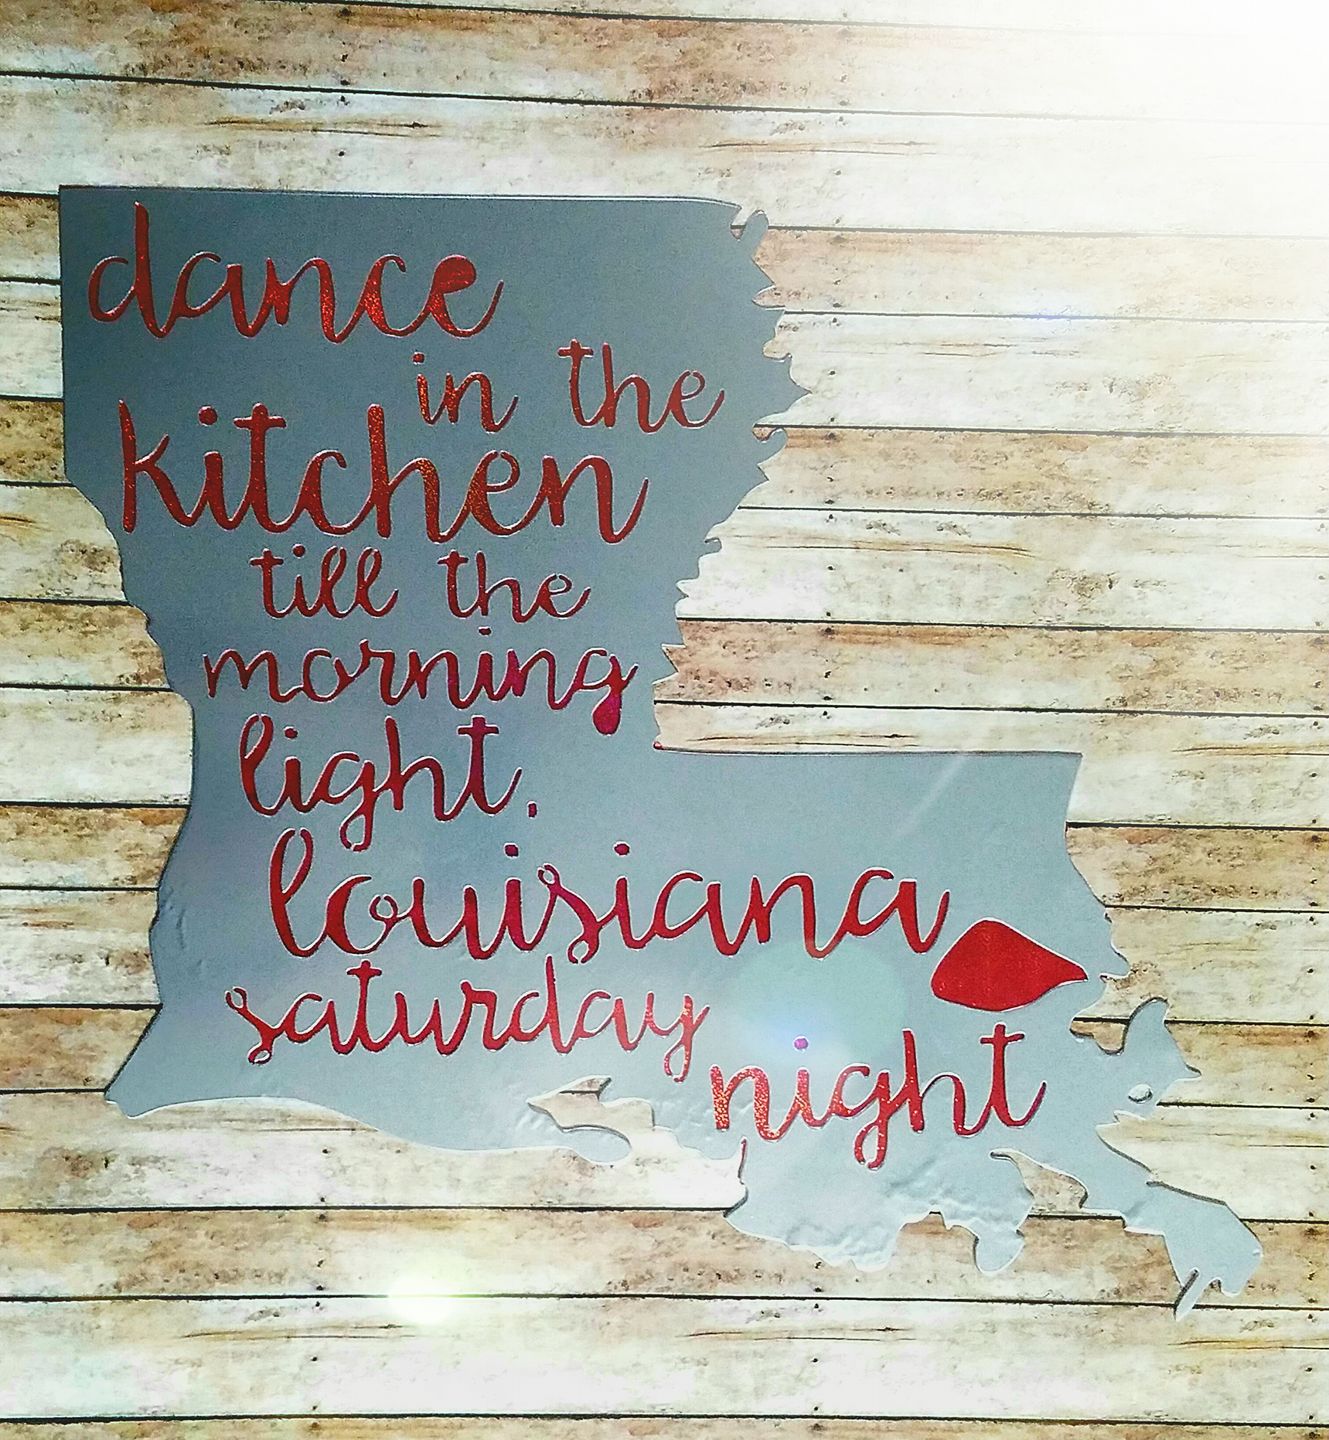 dance
in the
kitchen
till the
morning
light.
louisiana
saturday
night